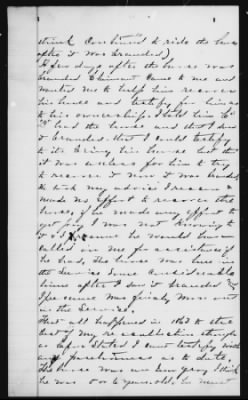 1
struck continued to ride the horse
after it was branded)
A few days after the horse was
branded Claimant came to me and
wanted me to help him recover
his horse and testify for him as
to his ownership. I told him
had the horse and that I saw
it branded that I could testify
to its being his horse but that
it was useless for him to try
to recover it now it was branded
he took my advice I reckon &
made no effort to recover the
horse, if he made any effort to
get pay I was not knowing to
it & I presume he would have
called on me for assistance if
he had, The horse was there in
the service some considerable
time after I saw it branded &
I presume was finally worn out
in the service.
That all happened in 1863 to the
best of my recollection though
as before stated I cant testify with
any preciseness as to date,
The horse was an iron gray I think
he was 5 or 6 years old, he went